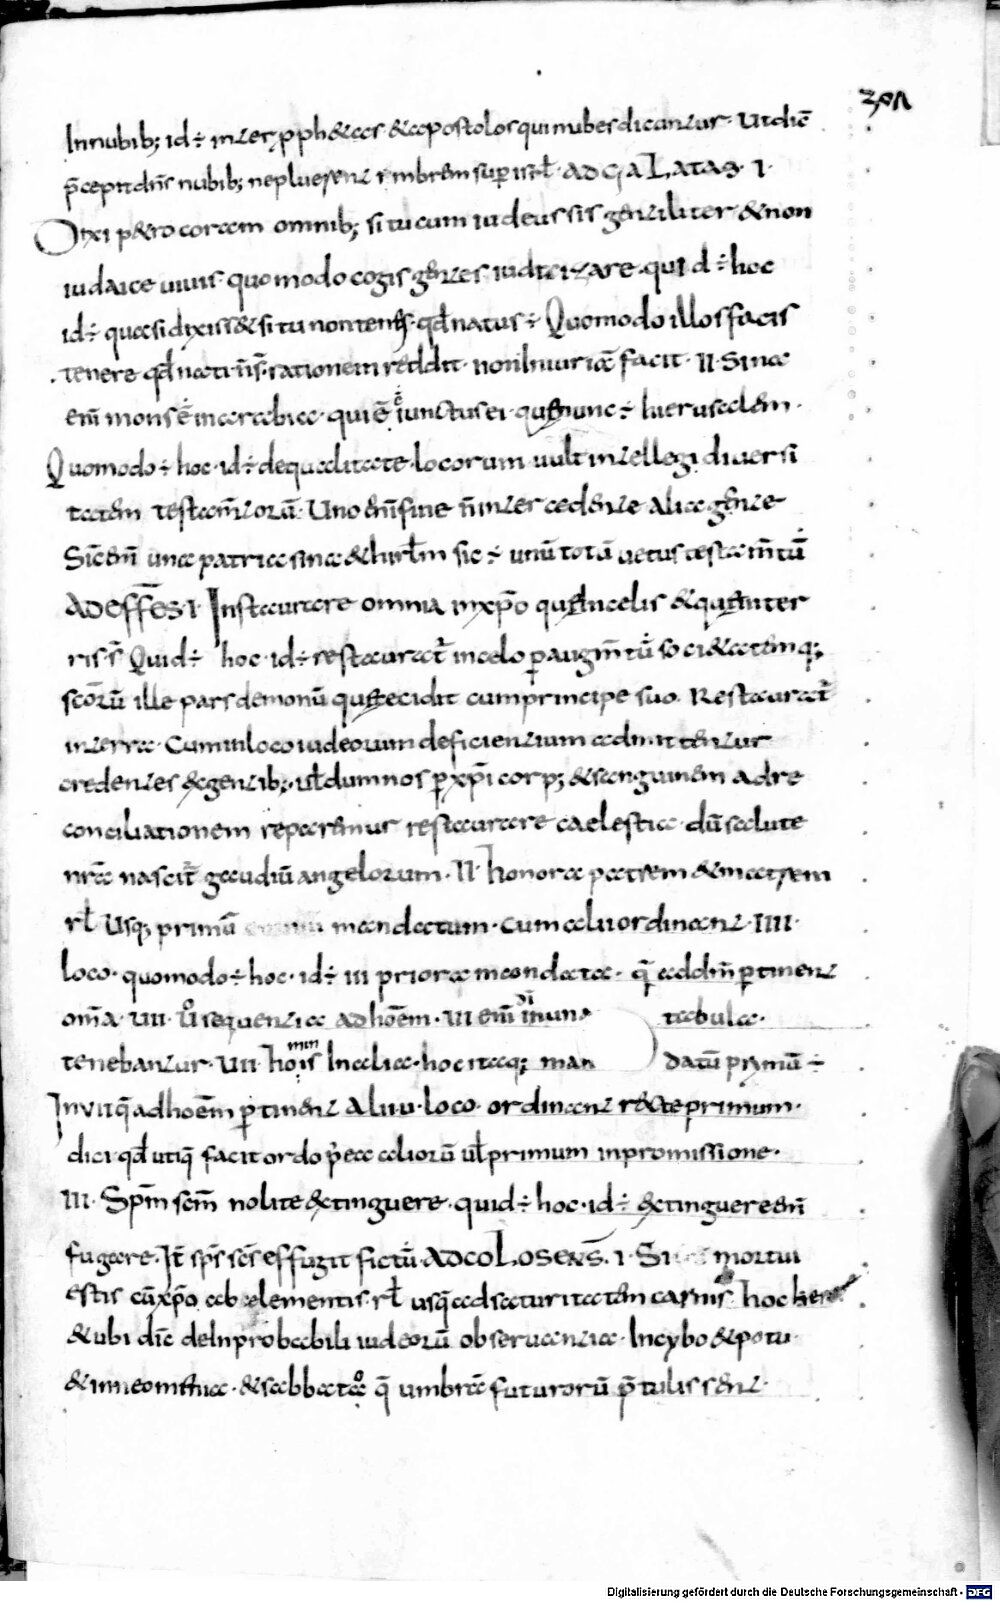 In nubib; id÷ inter pph&as &apostolos qui nubes dicantur· Ut dic̄
p̄cepit dn̄s nubib; ne pluerent imbrem sup isrl̄· AD GALATAS· I·
Dixi p&ro coram omnib; si tu cum iudeus sis gentiliter &non
iudaice uiuis quomodo cogis gentes iudaizare· quid÷ hoc
id÷ quasi dixiss& si tu non tenes· qd̄ natus÷ Quomodo illos facis
tenere qd̄ nati n̄ s̄· rationem reddit· non iniuriā facit· II· Sina
enī mons ē in arabia· qui ē iunctus ei· quę nunc÷ hierusalem·
Quomodo÷ hoc· id÷ de qualitate· locorum uult intellegi diuersi
tatem testam̄torū· Uno enī fine n̄ intercedente alia gente
Sic̄ enī una patria sina &hirl̄m sic÷ unū totū uetus testam̄tū
AD EFFES· I· Instaurare omnia in xp̄o quę in celis &quę in ter
ris s̄ Quid÷ hoc· id÷ restaurat̄ in celo p augm̄tū soci&atemq;
scōrū ille pars demonū quę cecidit cum principe suo· Restaurat̄
in terra· Cum in loco iudeorum deficientium admittentur
credentes &gentib;· ul̄ dum nos p xp̄i corp; &sanguinem ad re
conciliationem reparemur restaurare caelestia· dū salute
nr̄ā nascit̄ gaudiū angelorum· II· honora patrem &matrem
rl̄ Usq; primū mandatum· cum alii ordinant IIII·
loco· quomodo÷ hoc· id÷ III priora mandata· q̄ ad dm̄ ptinent
om̄a· UII· u͛o sequentia ad hoēm· UI enī in una tabula·
tenebantur· UII· hominis In alia· hoc itaq; man datū primū÷
In UII q̄ ad hoēm ptinent alii· U· loco· ordinant recte primum·
dici qd̄ utiq̄ facit ordo p̄ea aliorū ul̄ primum in promissione·
III· Spm̄ scm̄ nolite &tinguere· quid÷ hoc· id÷ &tinguere enī
fugare· It̄ sp̄s scs̄ effugit fictū· AD COLOSENS̄· I· Si mortui
estis cū xp̄o ab elementis· rl̄ usq̄ ad saturitatem carnis· hoc
&ubi dic̄ de Inprobabili iudeorū obseruantia· In cybo &potu·
&in neomenia· &sabbato q̄ umbrā futurorū p̄tulissent·